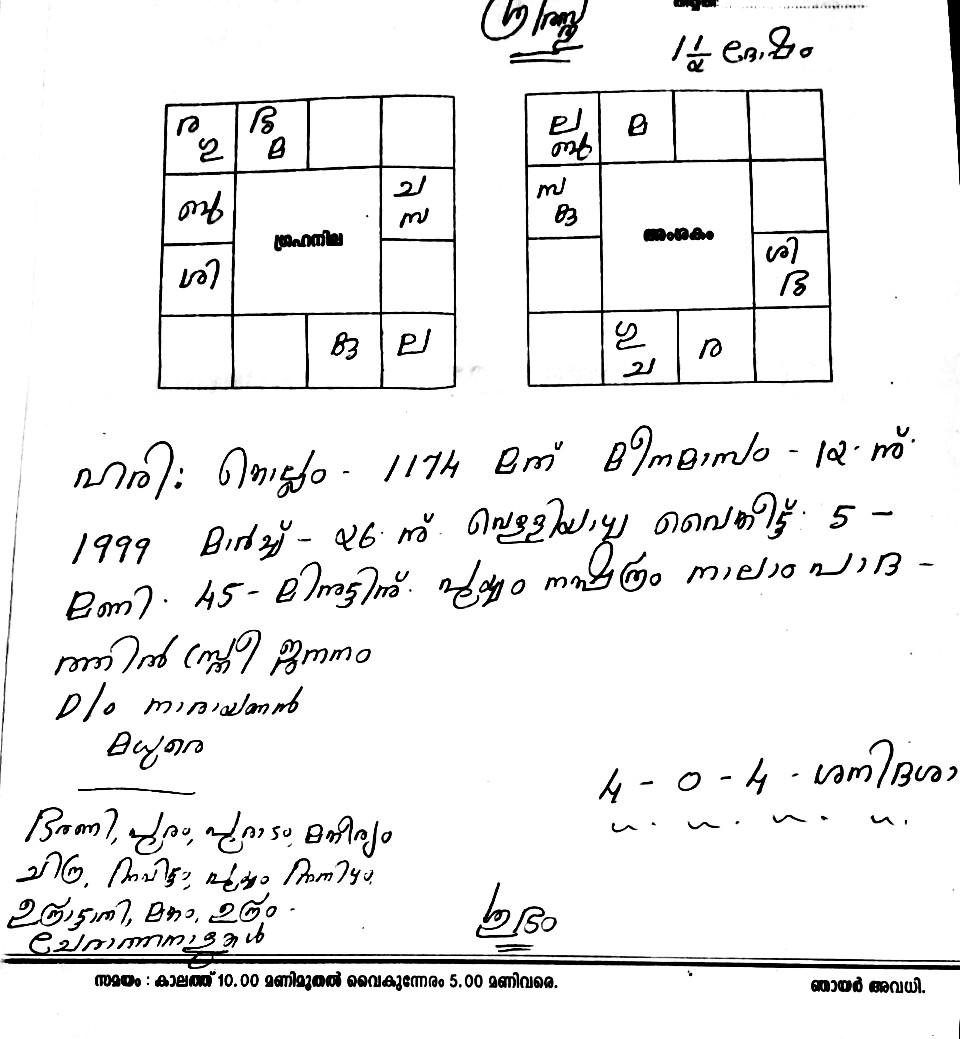 1 1/2 ദോഷം
ര ഗു
ശു മ
ബു
ച സ
ഗ്രഹനില
ശി
കു ല
ല ബു
മ
സ കു
അംശകം
ശി ശു
ഗു ച
ര
ഹരി: കൊല്ലം - 1174 മത് മീനമാസം - 12 ന്
1999 മാർച്ച് - 26 ന് വെള്ളിയാഴ്ച വൈകീട്ട് 5 -
മണി 45 - മിനുട്ടിന് പൂയ്യം നക്ഷത്രം നാലാം പാദ -
ത്തിൽ സ്ത്രീ ജനനം
D/o നാരായണൻ
മധുരെ
4 - 0 - 4 - ശനിദശാ
ഭരണി, പൂരം, പൂരാടം, മകീര്യം
ചിത്ര, അവിട്ടം, പൂയ്യം അനിഴം,
ഉത്രട്ടാതി, മകം, ഉത്രം
ചേരാത്തനാളുകൾ
ശുഭം
സമയം : കാലത്ത് 10.00 മണിമുതൽ വൈകുന്നേരം 5.00 മണിവരെ.
ഞായർ അവധി.